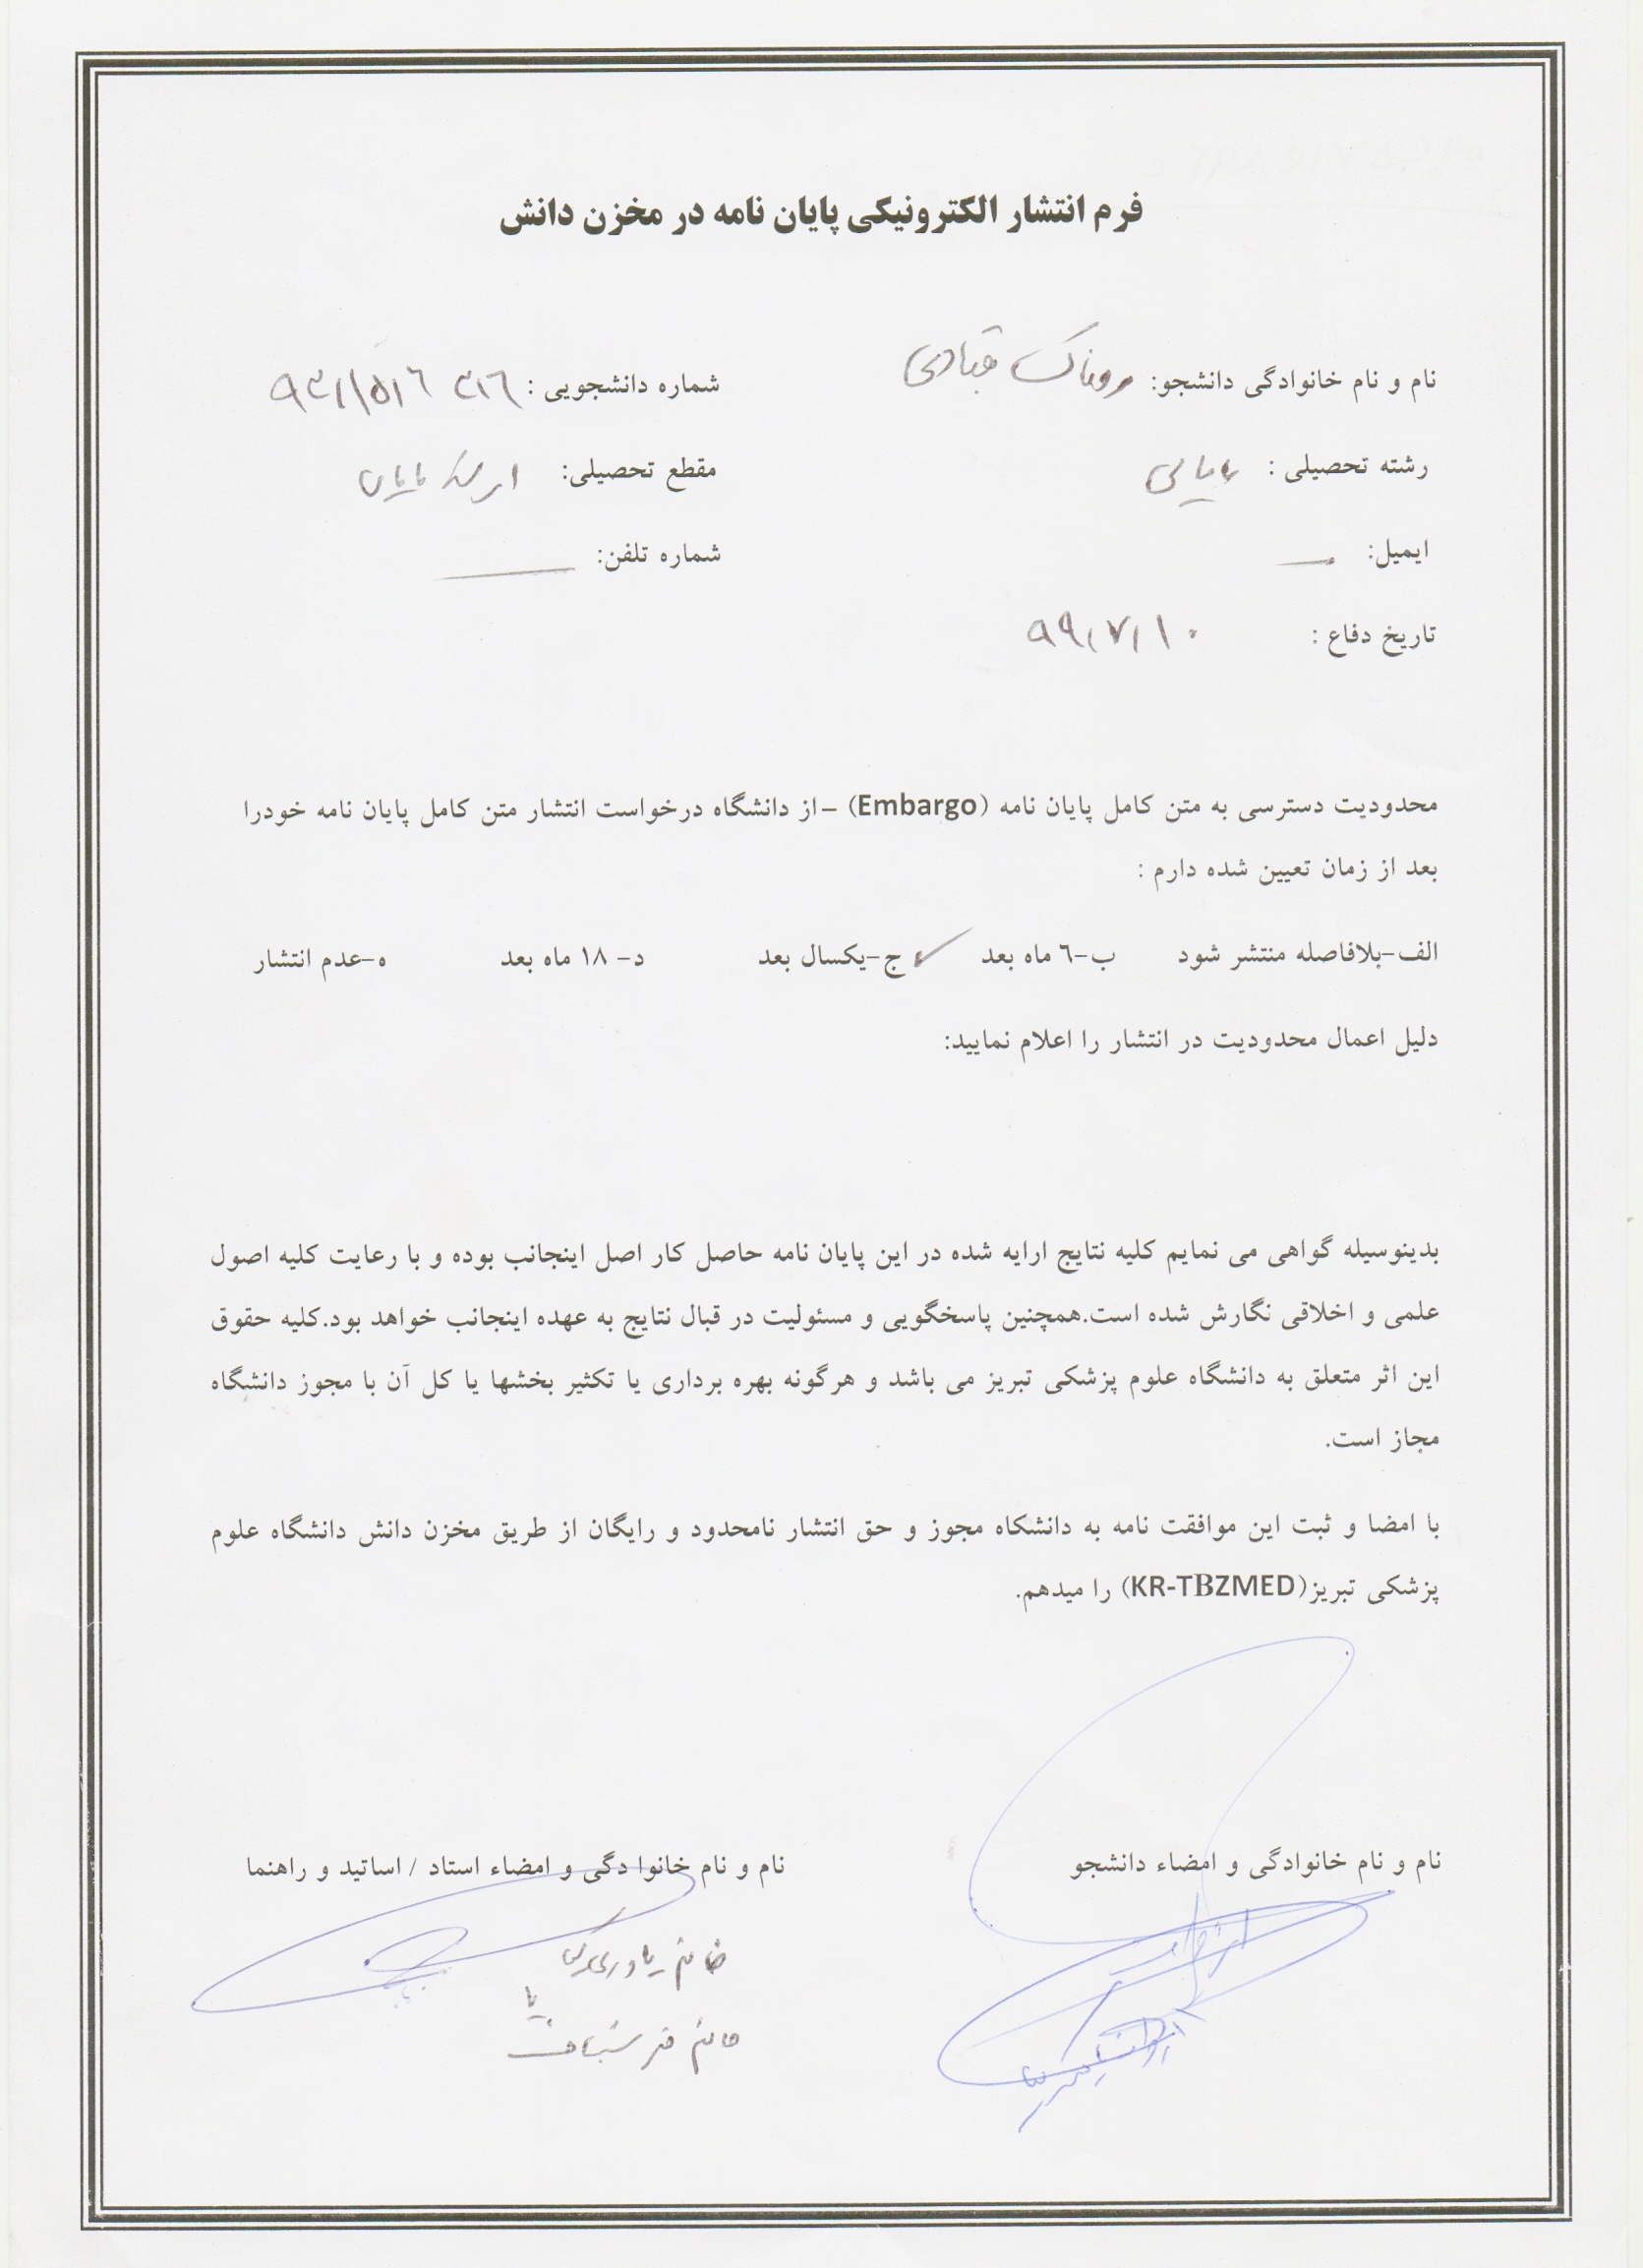 فرم انتشار الکترونیکی پایان نامه در مخزن دانش
نام و نام خانوادگی دانشجو: روناک قبادی شماره دانشجویی :
رشته تحصیلی : مامایی مقطع تحصیلی: ارشد مامایی
ایمیل: شماره تلفن:
تاریخ دفاع : ۹۹/۷/۱۰
محدودیت دسترسی به متن کامل پایان نامه (Embargo) –از دانشگاه درخواست انتشار متن کامل پایان نامه خودرا
بعد از زمان تعیین شده دارم :
الف-بلافاصله منتشر شود ب-٦ ماه بعد ✓ ج-یکسال بعد د- ١٨ ماه بعد ه-عدم انتشار
دلیل اعمال محدودیت در انتشار را اعلام نمایید:
بدینوسیله گواهی می نمایم کلیه نتایج ارایه شده در این پایان نامه حاصل کار اصل اینجانب بوده و با رعایت کلیه اصول
علمی و اخلاقی نگارش شده است.همچنین پاسخگویی و مسئولیت در قبال نتایج به عهده اینجانب خواهد بود.کلیه حقوق
این اثر متعلق به دانشگاه علوم پزشکی تبریز می باشد و هرگونه بهره برداری یا تکثیر بخشها یا کل آن با مجوز دانشگاه
مجاز است.
با امضا و ثبت این موافقت نامه به دانشکاه مجوز و حق انتشار نامحدود و رایگان از طریق مخزن دانش دانشگاه علوم
پزشکی تبریز(KR-TBZMED) را میدهم.
نام و نام خانوادگی و امضاء دانشجو نام و نام خانوا دگی و امضاء استاد / اساتید و راهنما
خانم
خانم فرشباف